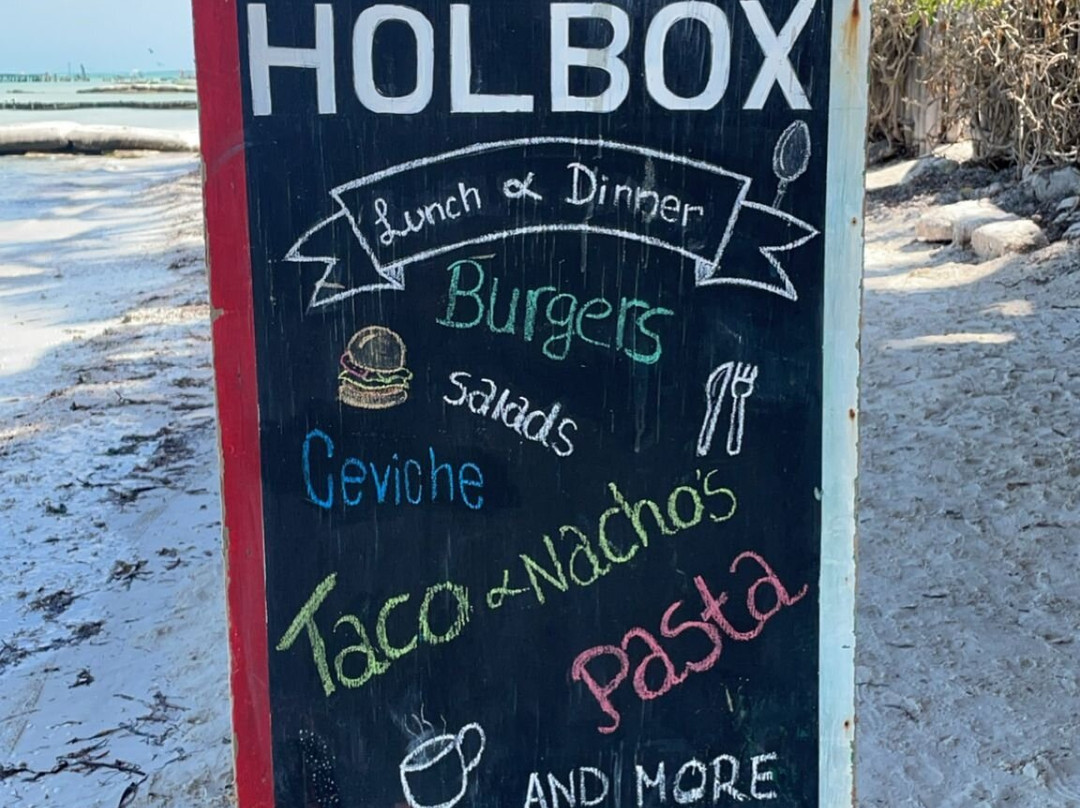 HOLBOX
Lunch & Dinner
Burgers
Salads
Ceviche
Taco & Nacho's
Pasta
AND MORE